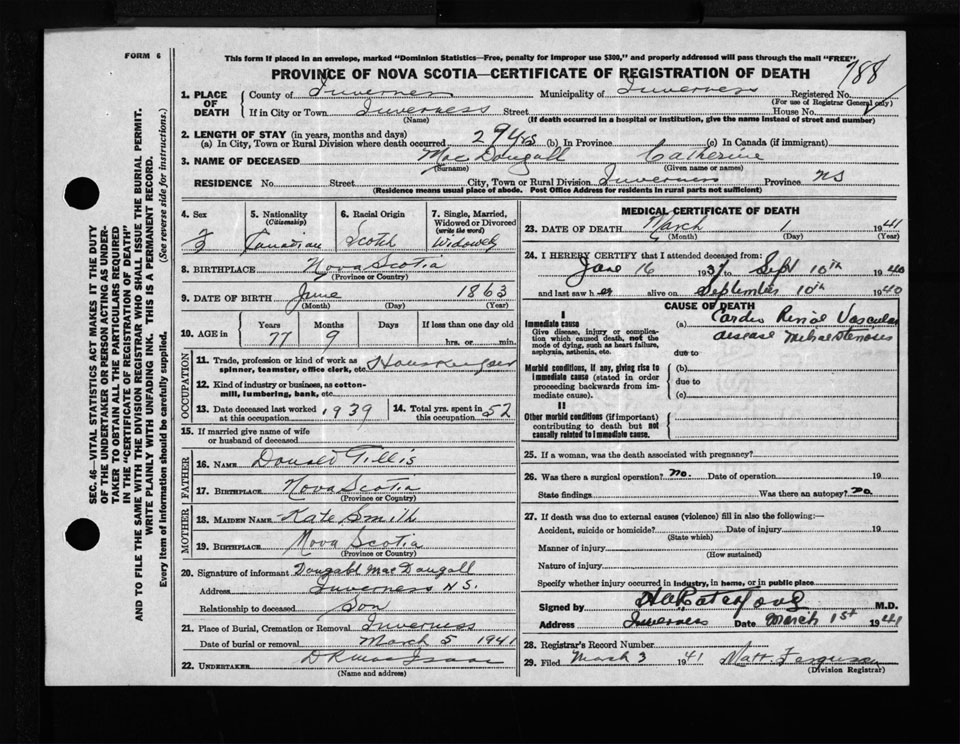 FORM 6
This form if placed in an envelope, marked "Dominion Statistics—Free, penalty for improper use $300," and properly addressed will pass through the mail "FREE"
PROVINCE OF NOVA SCOTIA—CERTIFICATE OF REGISTRATION OF DEATH
788
1. PLACE OF DEATH
County of Inverness Municipality of Inverness Registered No.
(For use of Registrar General only)
If in City or Town Inverness Street House No.
(Name) (If death occurred in a hospital or institution, give the name instead of street and number)
2. LENGTH OF STAY (in years, months and days)
(a) In City, Town or Rural Division where death occurred 29 yrs (b) In Province (c) In Canada (if immigrant)
3. NAME OF DECEASED MacDougall Catherine
(Surname) (Given name or names)
RESIDENCE No. Street City, Town or Rural Division Inverness Province NS
(Residence means usual place of abode. Post Office Address for residents in rural parts not sufficient)
4. Sex F
5. Nationality (Citizenship) Canadian
6. Racial Origin Scotch
7. Single, Married, Widowed or Divorced (write the word) Widowed
8. BIRTHPLACE Nova Scotia
(Province or Country)
9. DATE OF BIRTH June 1863
(Month) (Day) (Year)
10. AGE in Years Months Days If less than one day old
77 9 hrs. or min.
OCCUPATION
11. Trade, profession or kind of work as spinner, teamster, office clerk, etc. Housekeeper
12. Kind of industry or business, as cotton-mill, lumbering, bank, etc.
13. Date deceased last worked at this occupation 1939
14. Total yrs. spent in this occupation 52
15. If married give name of wife or husband of deceased
FATHER
16. NAME Donald Gillis
17. BIRTHPLACE Nova Scotia
(Province or Country)
MOTHER
18. MAIDEN NAME Kate Smith
19. BIRTHPLACE Nova Scotia
(Province or Country)
20. Signature of informant Dougald MacDougall
Address Inverness N.S.
Relationship to deceased Son
21. Place of Burial, Cremation or Removal Inverness
Date of burial or removal March 5 1941
22. UNDERTAKER D R MacIsaac
(Name and address)
MEDICAL CERTIFICATE OF DEATH
23. DATE OF DEATH March 1 1941
(Month) (Day) (Year)
24. I HEREBY CERTIFY that I attended deceased from:
June 16 1937 to Sept 10th 1940
and last saw her alive on September 10th 1940
CAUSE OF DEATH
I
Immediate cause
Give disease, injury or complication which caused death, not the mode of dying, such as heart failure, asphyxia, asthenia, etc.
(a) Cardio Renal Vascular
disease Mitral Stenosis
due to
Morbid conditions, if any, giving rise to immediate cause (stated in order proceeding backwards from immediate cause).
(b)
due to
(c)
II
Other morbid conditions (if important) contributing to death but not causally related to immediate cause.
25. If a woman, was the death associated with pregnancy?
26. Was there a surgical operation? no. Date of operation 19
State findings Was there an autopsy? no
27. If death was due to external causes (violence) fill in also the following:—
Accident, suicide or homicide? Date of injury 19
(State which)
Manner of injury
(How sustained)
Nature of injury
Specify whether injury occurred in industry, in home, or in public place
Signed by M.D.
Address Inverness Date March 1st 1941
28. Registrar's Record Number
29. Filed March 3 1941 Matt. Ferguson
(Division Registrar)
SEC. 46—VITAL STATISTICS ACT MAKES IT THE DUTY
OF THE UNDERTAKER OR PERSON ACTING AS UNDER-
TAKER TO OBTAIN ALL THE PARTICULARS REQUIRED
IN THE "CERTIFICATE OF REGISTRATION OF DEATH"
AND TO FILE THE SAME WITH THE DIVISION REGISTRAR WHO SHALL ISSUE THE BURIAL PERMIT.
WRITE PLAINLY WITH UNFADING INK. THIS IS A PERMANENT RECORD.
Every item of information should be carefully supplied. (See reverse side for instructions.)